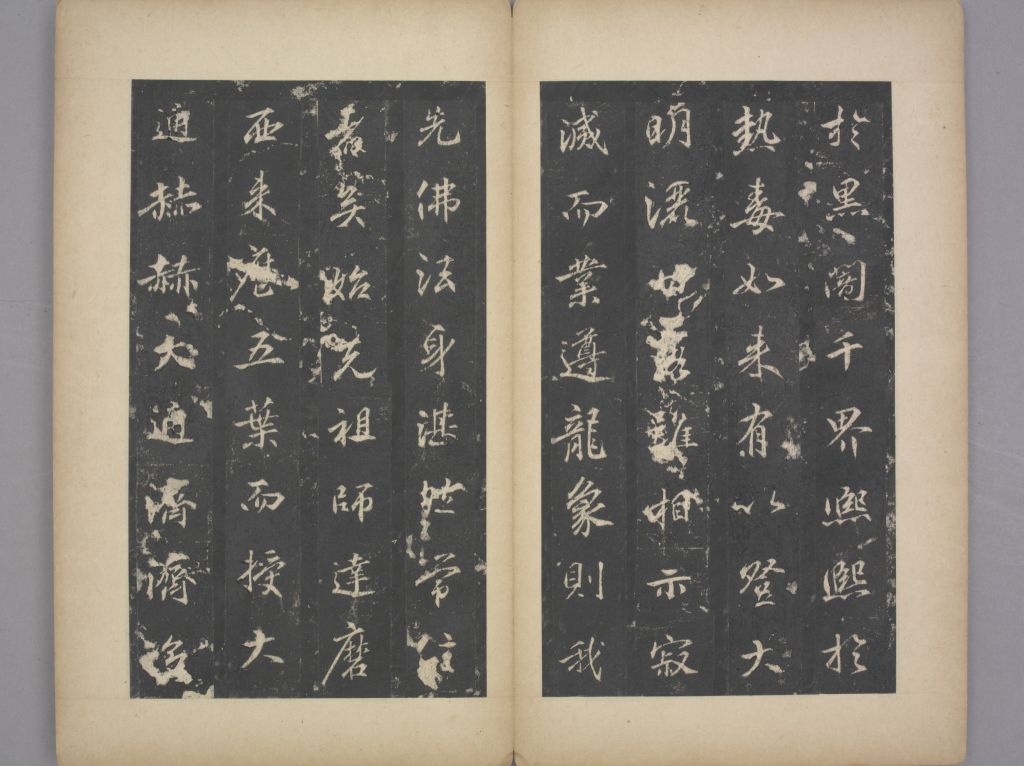 於黑闇千界熙熙於
熱毒如来有以登大
明濯甘露雖相示寂
滅而業遵龍象則我
先佛法身湛然常住
者矣始先祖師達磨
西来歷五葉而授大
通赫赫大通濟濟多